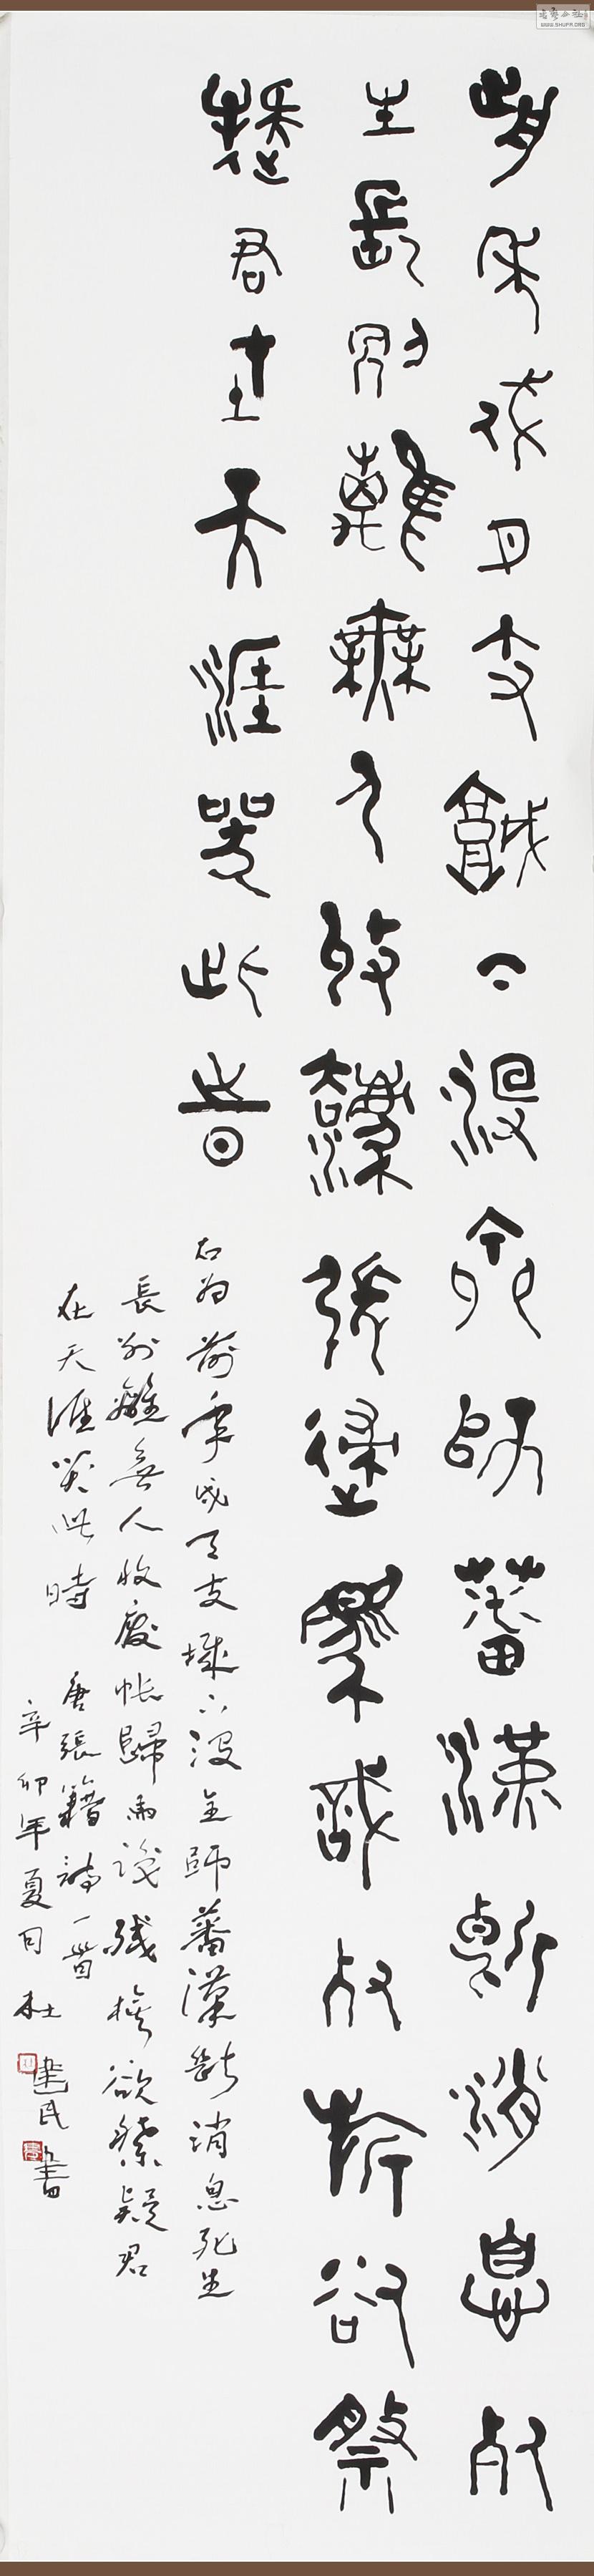 前年戍月支城下没全師蕃漢斷消息死
生長別離無人收廢帳歸馬識殘旂欲祭
疑君在天涯哭此時
右为前年戍月支城下没全師蕃漢断消息死生
長别離無人收廢帳歸馬識残旗欲祭疑君
在天涯哭此時 唐張籍詩一首
辛卯年夏月 杜建民書
WWW.SHUFR.ORG